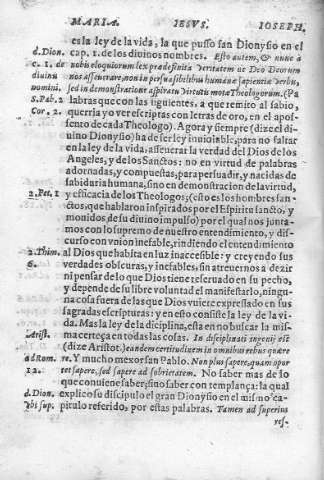 MARIA. IESVS. IOSEPH.
es la ley de la vida, la que pusso san Dionysio en el
d. Dion. cap. 1. de los diuinos nombres. Esto autem, & nunc à
c. 1. de nobis eloquiorum lex prædefinita veritatem de Deo Deorum
diuini nos asseuerare, non in persuasibilibus humanæ sapientiæ verbis,
nomini. sed in demonstratione aspiratæ virtutis motæ Theologorum. (Pa
S. Pab. 2 labras que con las siguientes, a que remito al sabio,
Cor. 2. querria yo ver escriptas con letras de oro, en el apos
sento de cada Theologo). Agora y siempre (dize el di
uino Dionysio) ha de ser ley inuiolable, para no faltar
en la ley de la vida, asseuerar la verdad del Dios de los
Angeles, y de los Sanctos: no en virtud de palabras
adornadas, y compuestas, para persuadir, y nacidas de
sabiduria humana, sino en demonstracion de la virtud,
2. Pet. 1 y efficacia de los Theologos; (esto es los hombres san-
ctos, que hablaron inspirados por el Espiritu sancto, y
monidos, de su diuino impulso) por el qual nos junta-
mos con lo supremo de nuestro entendimiento, y dis-
curso con vnion inefable, rindiendo el entendimiento
1. Thim. al Dios que habita en luz inaccessible: y creyendo sus
6. verdades obscuras, y inefables, sin atreuernos a dezir
ni pensar de lo que Dios tiene reseruado en su pecho,
y depende de su libre voluntad el manifestarlo, ningu-
na cosa fuera de las que Dios vuiere expressado en sus
sagradas escripturas: y en esso consiste la ley de la vi-
da. Mas la ley de la diciplina, esta en no buscar la mis-
Arist. ma certeça en todas las cosas. In disciplinati ingenij est
(dize Aristot.) eandem certitudinem in omnibus rebus quære
ad Rom. re. Y mucho mexor san Pablo. Non plus sapere, quam opor
12. tet sapere, sed sapere ad sobrietatem. No saber mas de lo
que conuiene saber; sino saber con templança: la qual
d. Dion. explico su discipulo el gran Dionysio en el mismo ca-
vbi sup. pitulo referido, por estas palabras. Tamen ad superius
res-